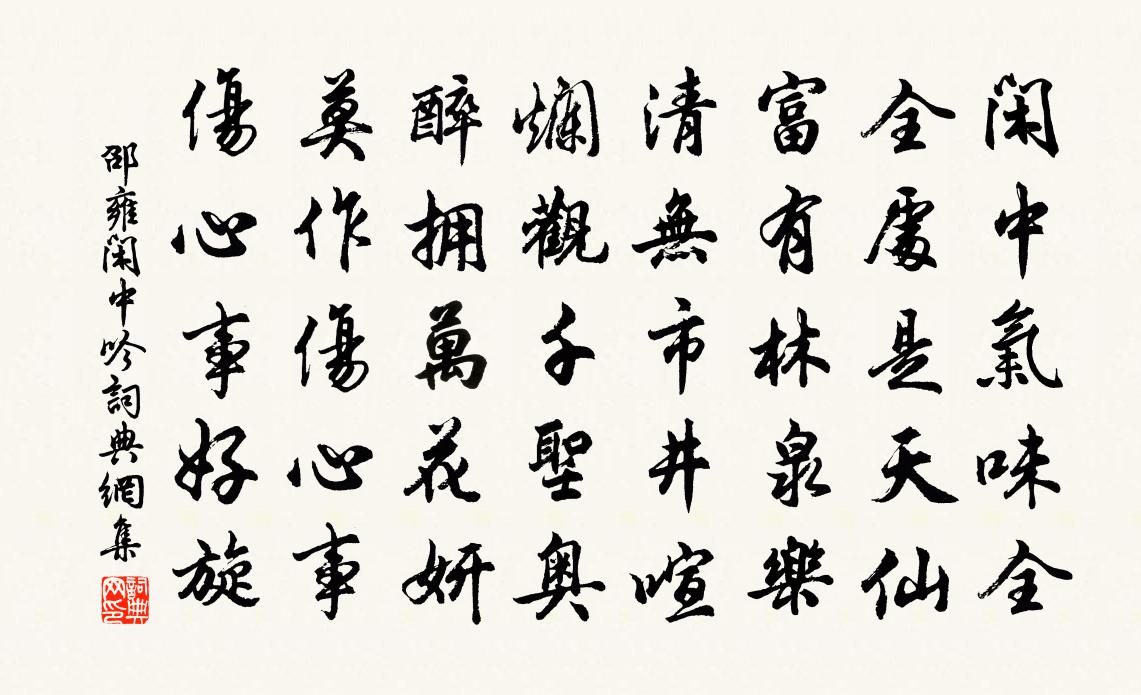 閑中氣味全
全處是天仙
富有林泉樂
清無市井喧
爛觀千聖奧
醉拥萬花妍
莫作傷心事
傷心事好旋
邵雍閑中吟詞典網集
詞典网印